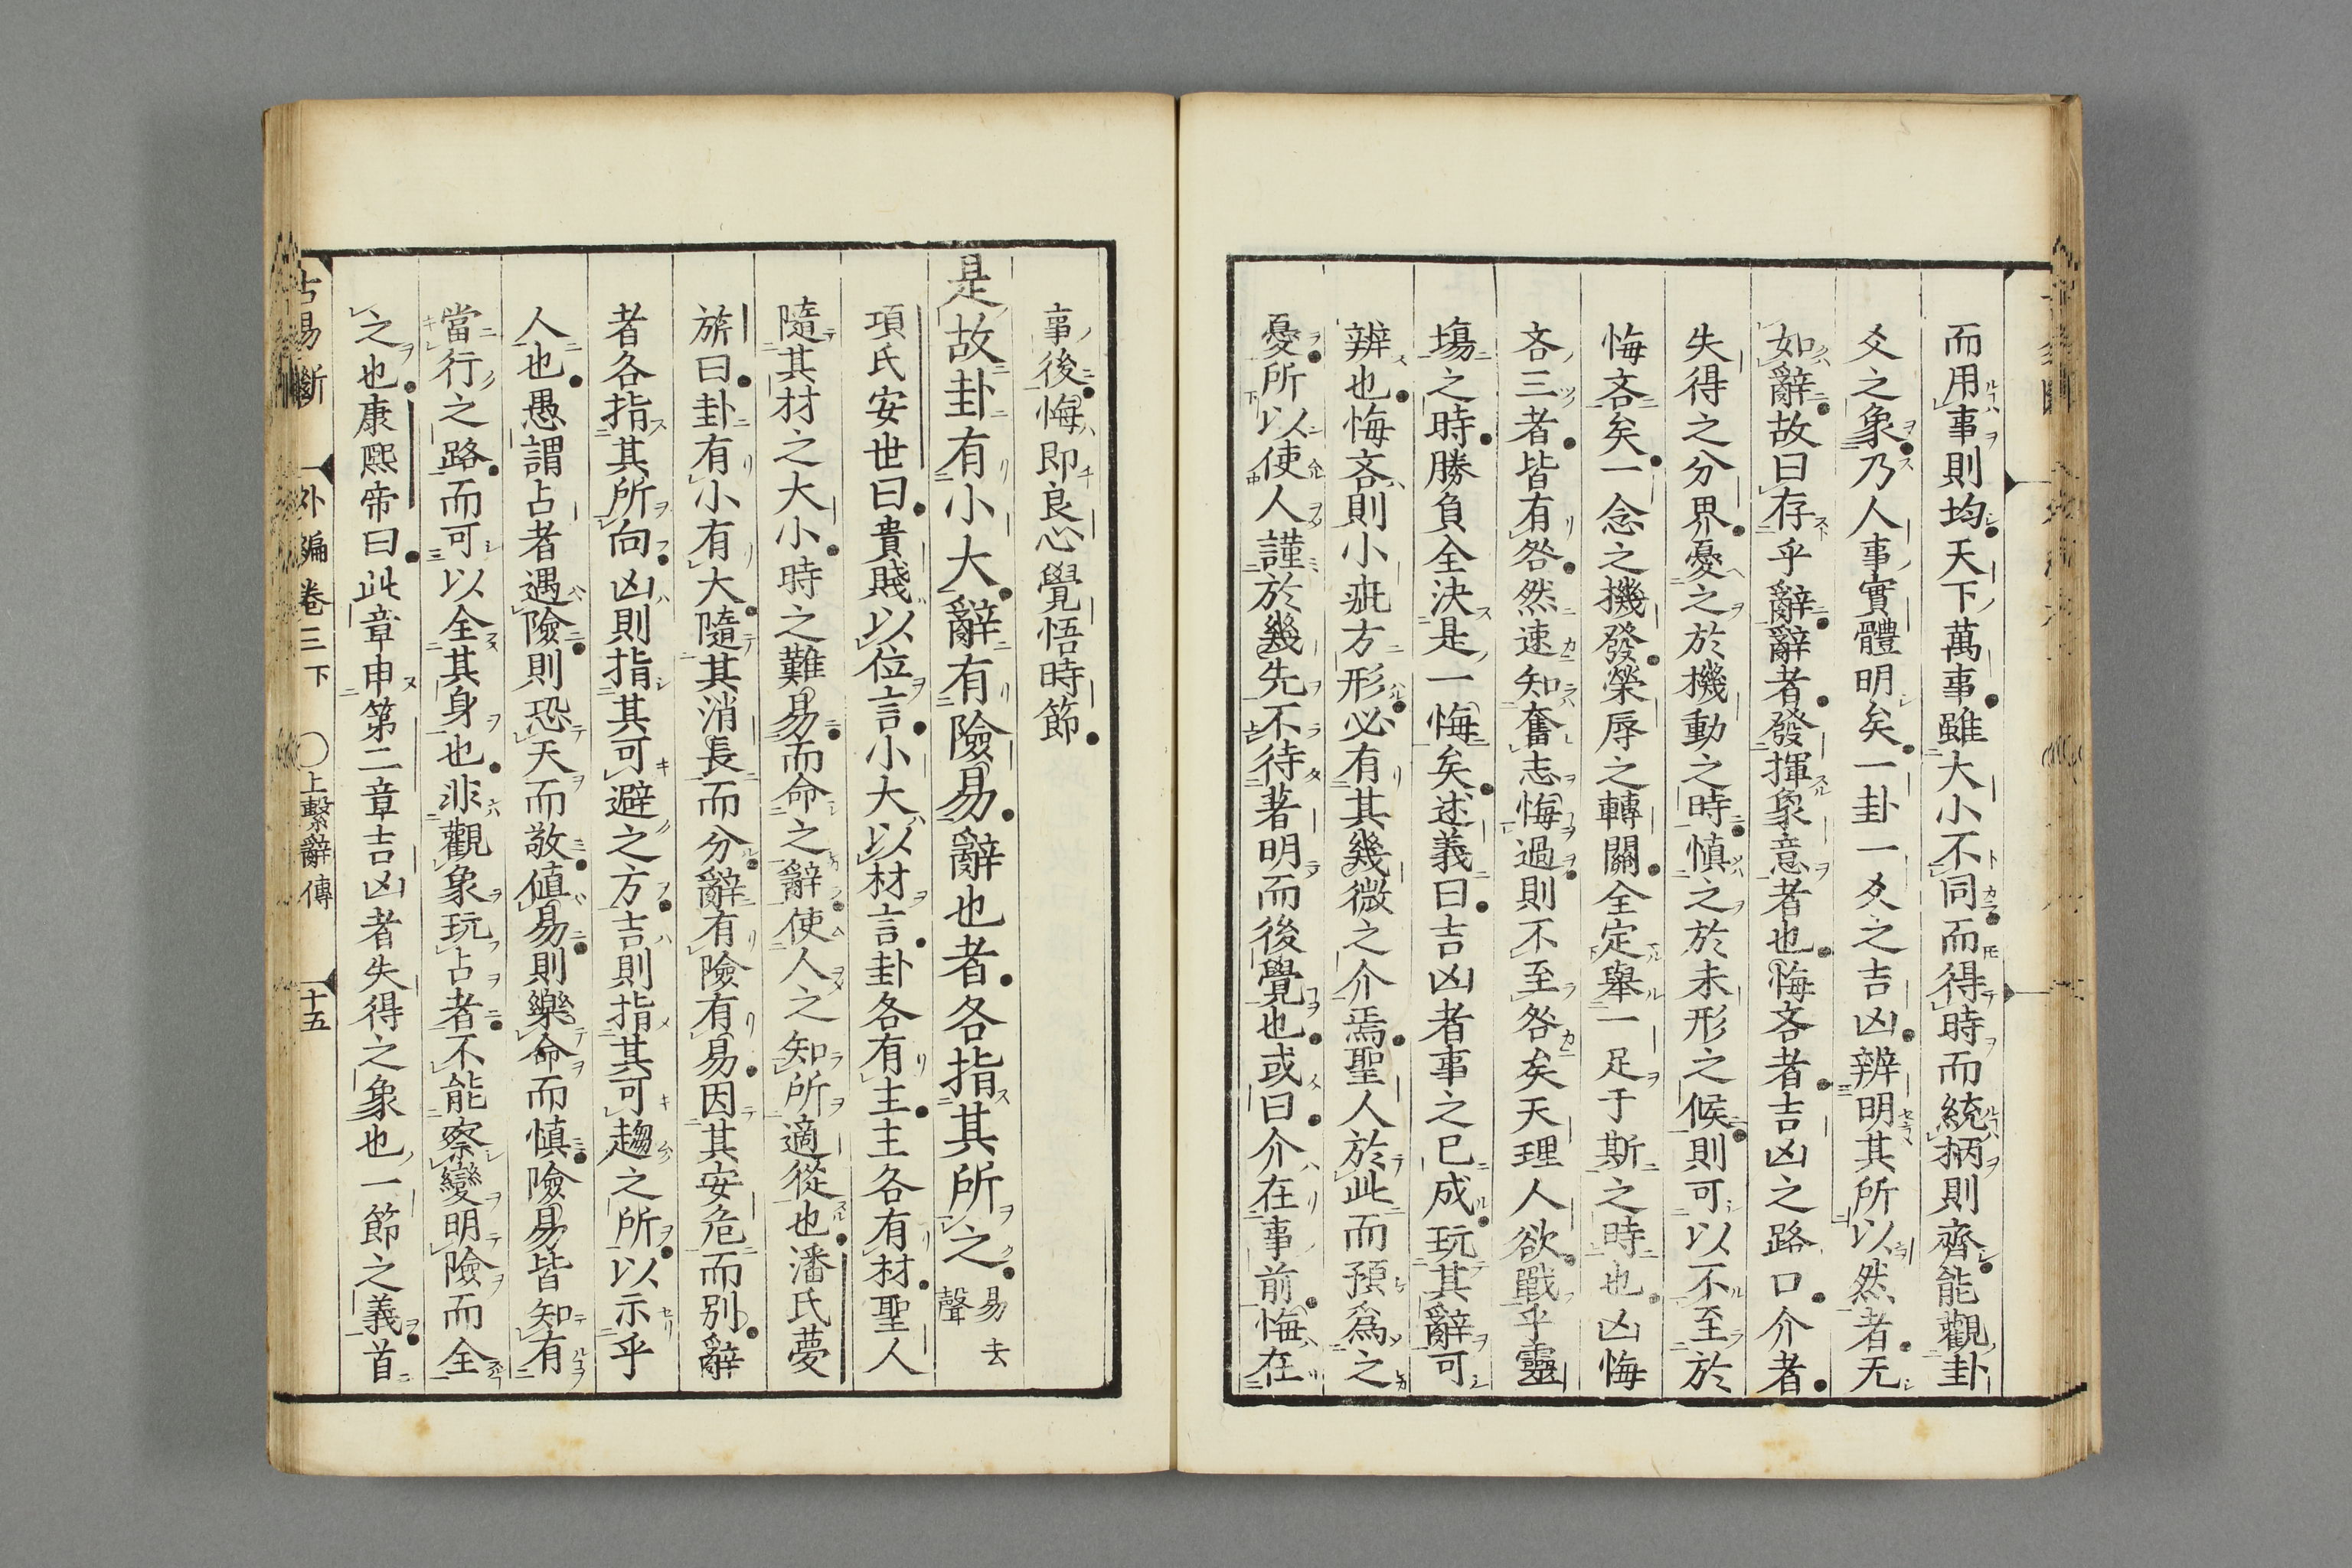 而用事則均天下萬事雖大小不同而得時而統柄則齊能觀卦
爻之象乃人事實體明矣一卦一爻之吉凶辨明其所以然者无
如辭故曰存乎辭辭者發揮象意者也悔吝者吉凶之路口介者
失得之分界憂之於機動之時慎之於未形之候則可以不至於
悔吝矣一念之機發榮辱之轉關全定舉一足于斯之時也凶悔
吝三者皆有咎然速知奮志悔過則不至咎矣天理人欲戰乎靈
塲之時勝負全決是一悔矣述義曰吉凶者事之已成玩其辭可
辨也悔吝則小疵方形必有其幾微之介焉聖人於此而預爲之
憂所以使人謹於幾先不待著明而後覺也或曰介在事前悔在
事後悔即良心覺悟時節
是故卦有小大辭有險易辭也者各指其所之
易去聲
項氏安世曰貴賤以位言小大以材言卦各有主主各有材聖人
隨其材之大小時之難易而命之辭使人之知所適從也潘氏夢
旂曰卦有小有大隨其消長而分辭有險有易因其安危而别辭
者各指其所向凶則指其可避之方吉則指其可趨之所以示乎
人也愚謂占者遇險則恐天而敬値易則樂命而慎險易皆知有
當行之路而可以全其身也非觀象玩占者不能察變明險而全
之也康熙帝曰此章申第二章吉凶者失得之象也一節之義首
古易斷 外編卷三下 〇上繫辭傳 十五